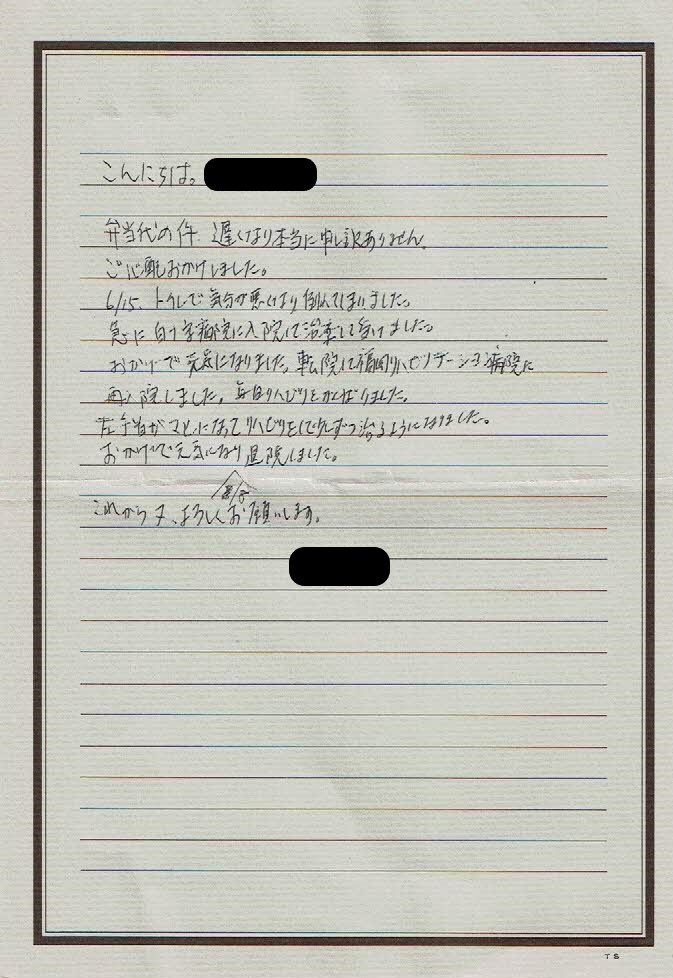 こんにちは。
弁当代の件、遅くなり本当に申し訳ありません。
ご心配おかけしました。
6/15、トイレで気分が悪くなり倒れてしまいました。
急に白十字病院に入院して治療を受けました。
おかげで元気になりました。転院して福岡リハビリテーション病院に
再入院しました。毎日リハビリをがんばりました。
左手首がマヒになってリハビリをして少しずつ治るようになりました。
おかげで元気になり退院しました。
これからも、よろしくお願いします。
TS